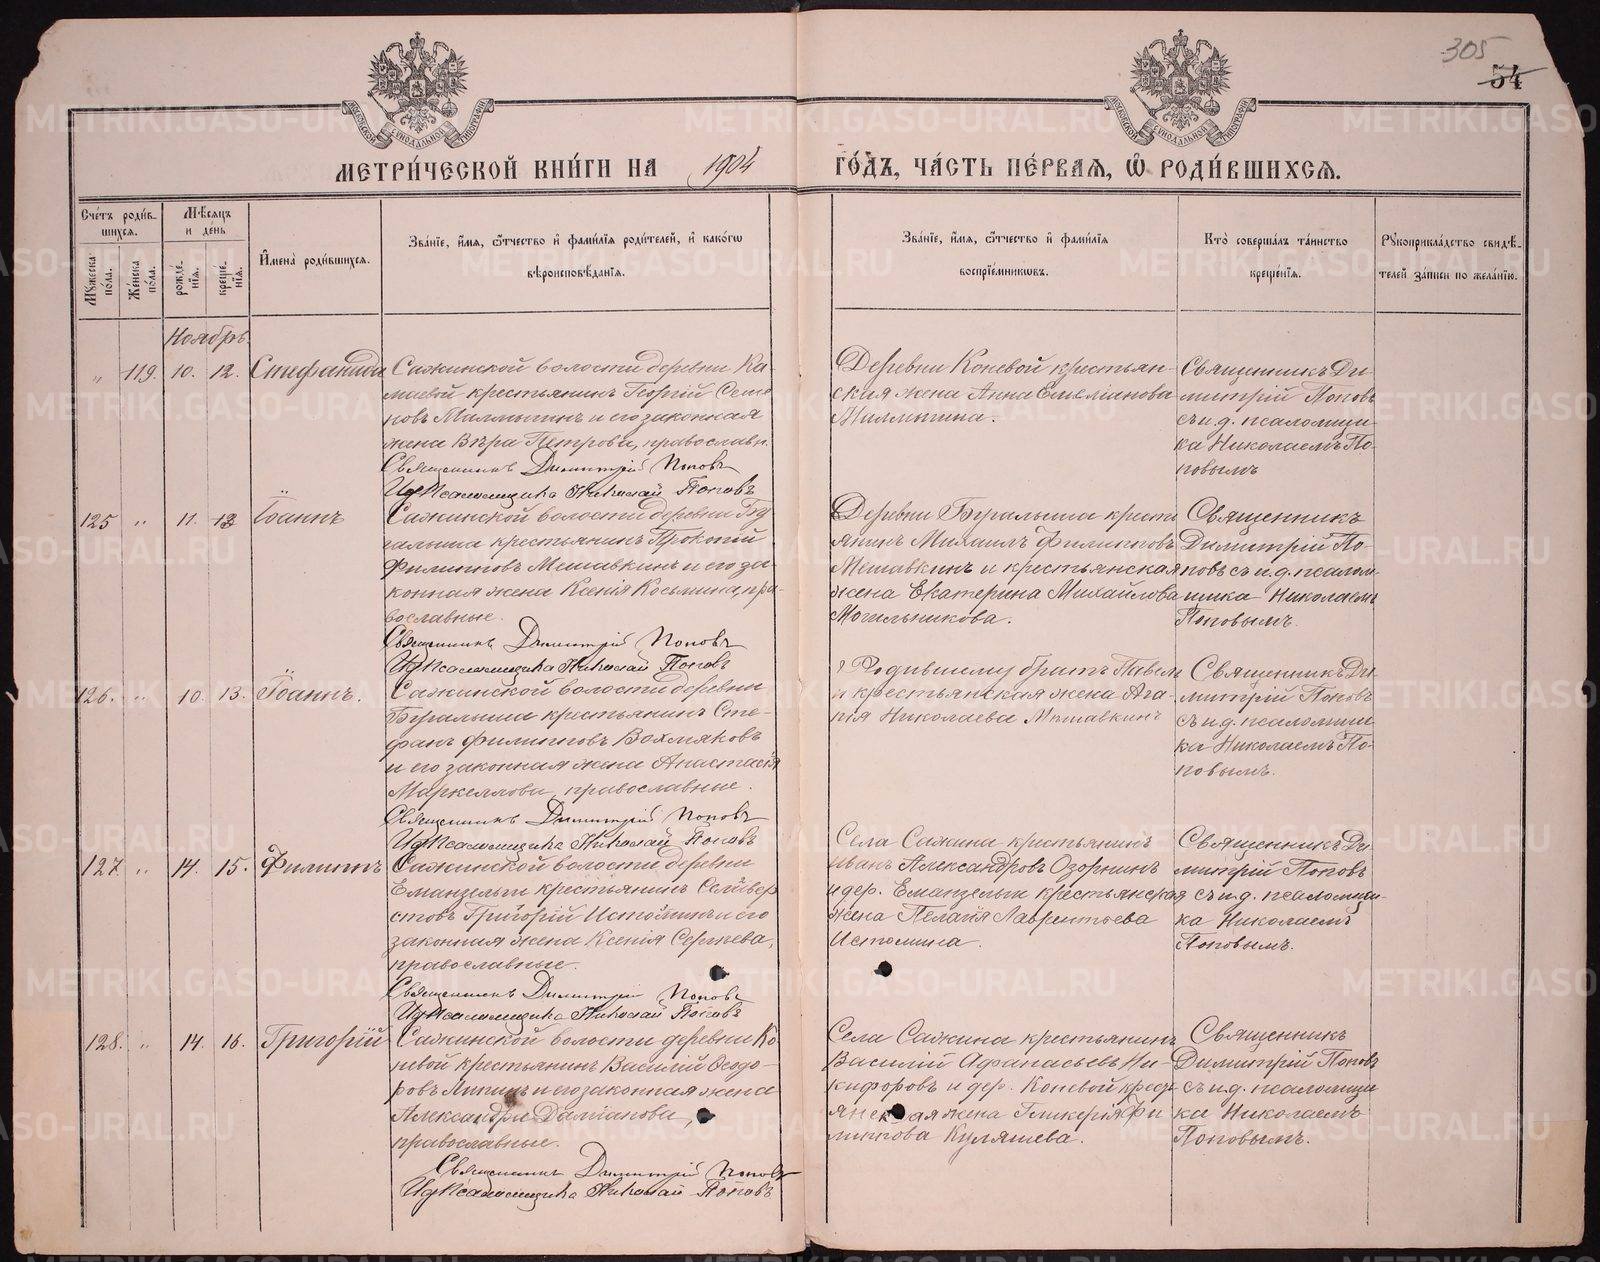 305
54
МЕТРИ́ЧЕСКОЙ КНИ́ГИ НА 1904 ГО́ДЪ, ЧА́СТЬ ПЕ́РВАЯ, Ѡ РОДИ́ВШИХСЯ.
Сче́тъ роди́в-
шихся.
Му́жеска по́ла.
Же́нска по́ла.
Мѣ́сяцъ
и де́нь
рожде́-
нїя.
креще́-
нїя.
Имена̀ роди́вшихся.
Зва́нїе, и́мя, ѻ҆́тчество и҆ фами́лїя роди́телей, и҆ како́гѡ
вѣроисповѣ́данїя.
Зва́нїе, и́мя, ѻ҆́тчество и҆ фами́лїя
воспрїе́мниковъ.
Кто̀ соверша́лъ та́инство
креще́нїя.
Рꙋкоприкла́дство свидѣ́-
телей за́писи по жела́нїю.
Ноябрь
„ 119. 10. 12.
Сажинской волости деревни Ка-
маевой крестьянинъ Георгій Семе
новъ Малмыгинъ и его законная
жена Вѣра Петрова, православн.
Священникъ Димитрій Поповъ
Ид Псаломщика Николай Поповъ
Деревни Коневой крестьян-
ская жена Анна Емеліанова
Малмыгина.
Священникъ Ди-
митрій Поповъ
съ и.д. псаломщи-
ка Николаемъ По-
повымъ
125 „ 11. Іоаннъ
Сажинской волости деревни Бу
галыша крестьянинъ Прокопій
Филипповъ Мешавкинъ и его за-
конная жена Ксенія Косьмина, пра-
вославные.
Священникъ Димитрій Поповъ
Ид Псаломщика Николай Поповъ
Деревни Бугалыша крестья
янинъ Михаилъ Филипповъ
Мешавкинъ и крестьянская
жена Екатерина Михайлова
Могильникова.
Священникъ
Димитрій По-
повъ съ и.д. псалом-
щика Николаемъ
Поповымъ.
126. „ 10. 13. Іоаннъ.
Сажинской волости деревни
Бугалыша крестьянинъ Сте-
фанъ Филипповъ Вахмяковъ
и его законная жена Анастасія
Маркеллова, православные.
Священникъ Димитрій Поповъ
Ид Псаломщика Николай Поповъ
Родившему братъ Павелъ
и крестьянская жена Ага-
пія Николаева Мешавкинъ
Священникъ Ди-
митрій Поповъ
съ и.д. псаломщи-
ка Николаемъ По-
повымъ.
127 „ 14. 15. Филиппъ
Сажинской волости деревни
Еманзельги крестьянинъ Селивер
стовъ Григорій Истоминъ и его
законная жена Ксенія Сергѣева,
православные.
Священникъ Димитрій Поповъ
Ид Псаломщика Николай Поповъ
Села Сажина крестьянинъ
Иванъ Александровъ Озорнинъ
и дер. Еманзельги крестьянская
жена Пелагія Лаврентьева
Истомина.
Священникъ Ди-
митрій Поповъ
съ и.д. псаломщи-
ка Николаемъ
Поповымъ.
128. „ 14. 16. Григорій
Сажинской волости деревни Ко
невой крестьянинъ Василій Ѳеодо-
ровъ и его законная жена
Александра Даміанова,
православные.
Священникъ Димитрій Поповъ
Ид Псаломщика Николай Поповъ
Села Сажина крестьянинъ
Василій Афанасьевъ Ни-
кифоровъ и дер. Коневой крест-
янская жена Гликерія Фи
липпова Куляшева.
Священникъ
Димитрій Поповъ
съ и.д. псаломщи
ка Николаемъ
Поповымъ.
METRIKI.GASO-URAL.RU